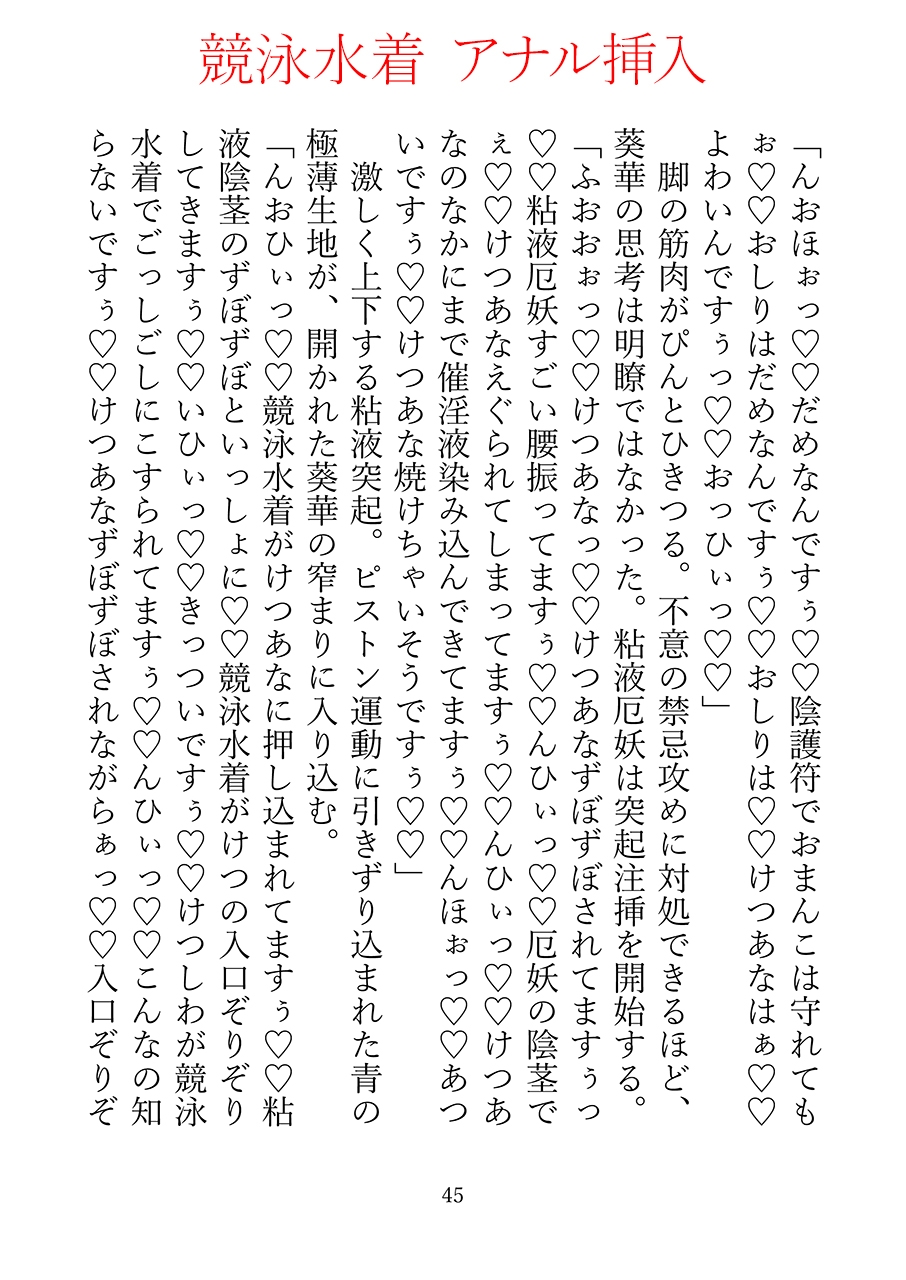 競泳水着 アナル挿入
「んおほぉっ♡♡だめなんですぅ♡♡陰護符でおまんこは守れても
ぉ♡♡おしりはだめなんですぅ♡♡おしりは♡♡けつあなはぁ♡♡
よわいんですぅっ♡♡おっひぃっ♡♡」
　脚の筋肉がぴんとひきつる。不意の禁忌攻めに対処できるほど、
葵華の思考は明瞭ではなかった。粘液厄妖は突起注挿を開始する。
「ふおおぉっ♡♡けつあなっ♡♡けつあなずぼずぼされてますぅっ
♡♡粘液厄妖すごい腰振ってますぅ♡♡んひぃっ♡♡厄妖の陰茎で
ぇ♡♡けつあなえぐられてしまってますぅ♡♡んひぃっ♡♡けつあ
なのなかにまで催淫液染み込んできてますぅ♡♡んほぉっ♡♡あつ
いですぅ♡♡けつあな焼けちゃいそうですぅ♡♡」
　激しく上下する粘液突起。ピストン運動に引きずり込まれた青の
極薄生地が、開かれた葵華の窄まりに入り込む。
「んおひぃっ♡♡競泳水着がけつあなに押し込まれてますぅ♡♡粘
液陰茎のずぼずぼといっしょに♡♡競泳水着がけつの入口ぞりぞり
してきますぅ♡♡いひぃっ♡♡きっついですぅ♡♡けつしわが競泳
水着でごっしごしにこすられてますぅ♡♡んひぃっ♡♡こんなの知
らないですぅ♡♡けつあなずぼずぼされながらぁっ♡♡入口ぞりぞ
45